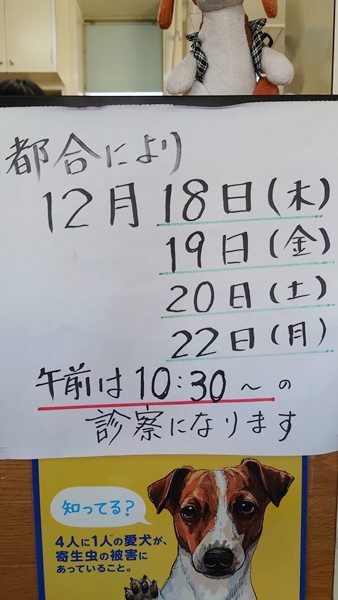 都合により
12月18日(木)
19日(金)
20日(土)
22日(月)
午前は10:30～の
診察になります
知ってる?
4人に1人の愛犬が、
寄生虫の被害に
あっていること。